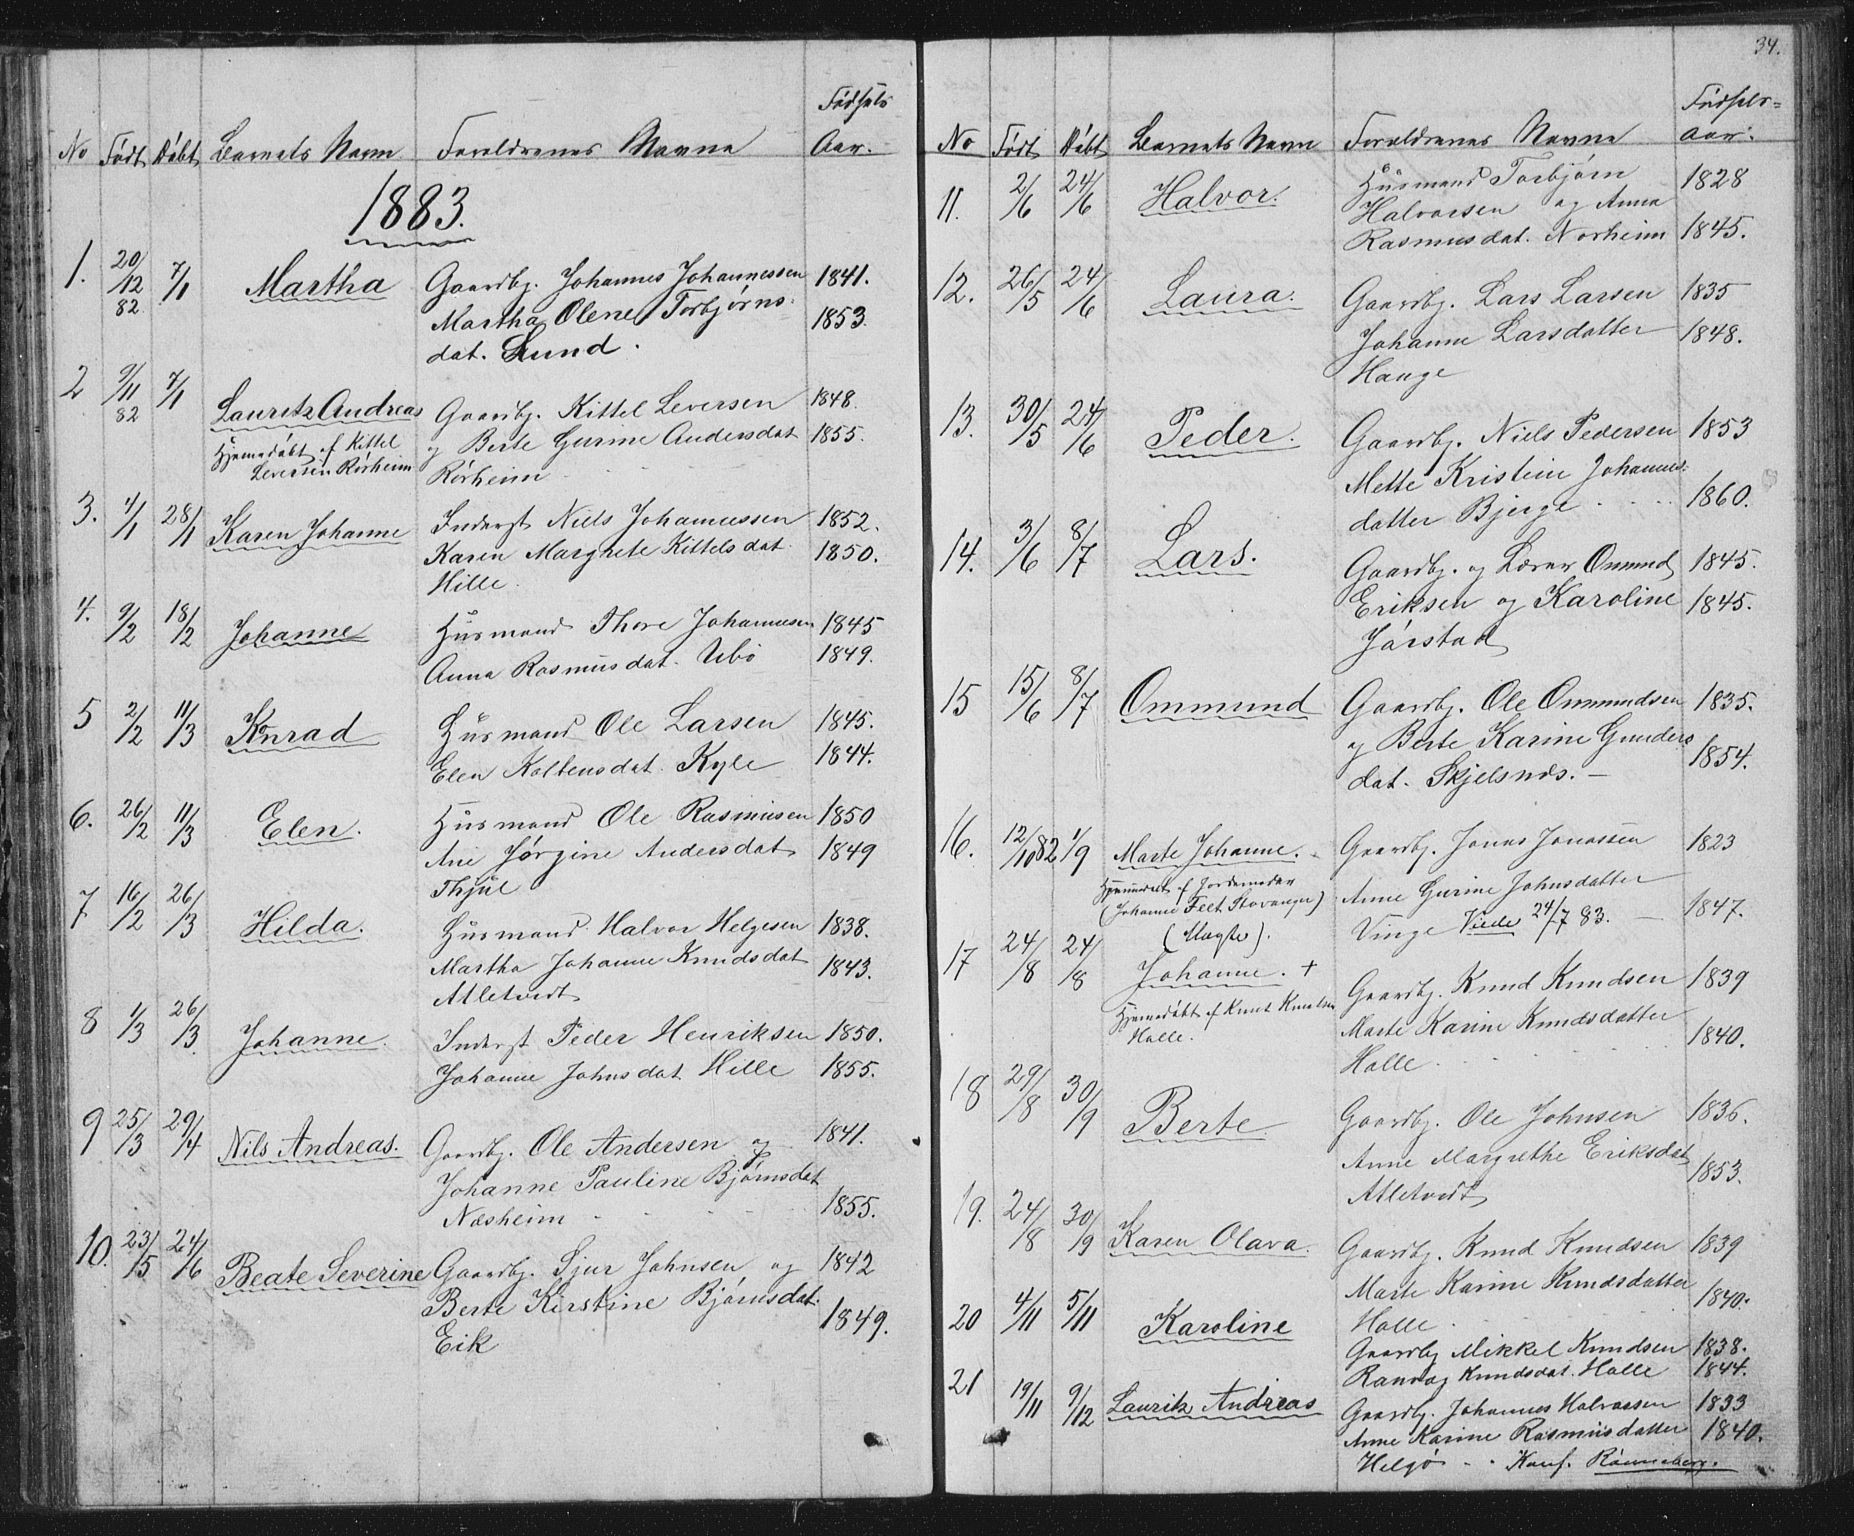 No Født Døbt Barnets Navn Forældrenes Navne Fødsels Aar.
1883.
1. 20/12 82 7/1 Martha Gaardbg. Johannes Johannessen 1841.
Martha Olene Torbjørns- 1853.
dat. Lund.
2 9/11 82 7/1 Lauritz Andreas Gaardbg. Kittel Leversen 1848.
Hjemedøbt af Kittel og Berte Gurine Andersdat 1855.
Leversen Rørheim Rørheim
3. 4/1 28/1 Karen Johanne Inderst Niels Johannessen 1852.
Karen Margrete Kittelsdat. 1850.
Hille.
4. 9/2 18/2 Johanne Husmand Thore Johannesen 1845
Anna Rasmusdat. Ubø 1849.
5 2/2 11/3 Konrad Husmand Ole Larsen 1845.
Elen Kolbensdat. Kyle 1844.
6. 26/2 11/3 Elen. Husmand Ole Rasmusen 1850
Ane Jørgine Andersdat 1849
Thjul
7 16/2 26/3 Hilda. Husmand Halvor Helgesen 1838.
Martha Johanne Knudsdat 1843.
Atletvedt
8 1/3 26/3 Johanne. Inderst Peder Henriksen 1850.
Johanne Johnsdat Hille 1855.
9 25/3 29/4 Nils Andreas. Gaardbg. Ole Andersen og 1841.
Johanne Pauline Bjørnsdat
Næsheim 1855.
10. 23/5 24/6 Beate Severine Gaardbg. Sjur Johnsen og 1842
Berte Kirstine Bjørnsdat. 1849.
Eik
34.
No Født Døbt Barnets Navn Forældrenes Navne Fødsels- Aar.
11. 2/6 24/6 Halvor. Husmand Torbjørn 1828
Halvorsen og Anna
Rasmusdat. Norheim 1845.
12. 26/5 24/6 Laura. Gaardbg. Lars Larsen 1835
Johanne Larsdatter 1848.
Hauge
13. 30/5 24/6 Peder. Gaardbg. Niels Pedersen 1853
Mette Kristine Johannes-
datter Bjerge 1860.
14. 3/6 8/7 Lars. Gaardbg. og Lærer Ommund 1845.
Eriksen og Karoline 1845.
Jørstad
15 15/6 8/7 Ommund Gaardbg. Ole Ommundsen 1835.
og Berte Karine Gunders
dat. Skjelsnæs. 1854.
16. 12/10 82 1/9 Marte Johanne. Gaardbg. Jonas Jonassen 1823
Hjemmedøbt af Jordemoder Anne Gurine Johnsdatter
(Johanne Felt, Stavanger) Vinge Viede 24/7 83. 1847.
(Uægte).
17 24/8 24/8 Johanne. + Gaardbg. Knud Knudsen 1839
Hjemedøbt af Knut Knutsen Marte Karine Knudsdatter 1840.
Halle. Halle.
18 29/8 30/9 Berte Gaardbg. Ole Johnsen 1836.
Anne Margrethe Eriksdat 1853.
Atletvedt
19. 24/8 30/9 Karen Olava. Gaardbg. Knud Knudsen 1839
Marte Karine Knudsdatter 1840.
Halle.
20 4/11 5/11 Karoline Gaardbg Mikkel Knudsen 1838.
Randag Knudsdat. Halle 1844.
21 19/11 9/12 Laurits Andreas Gaardbg. Johannes Halvorsen 1833
Anne Karine Rasmusdatter 1840.
Helgø Konf. Rønneberg.